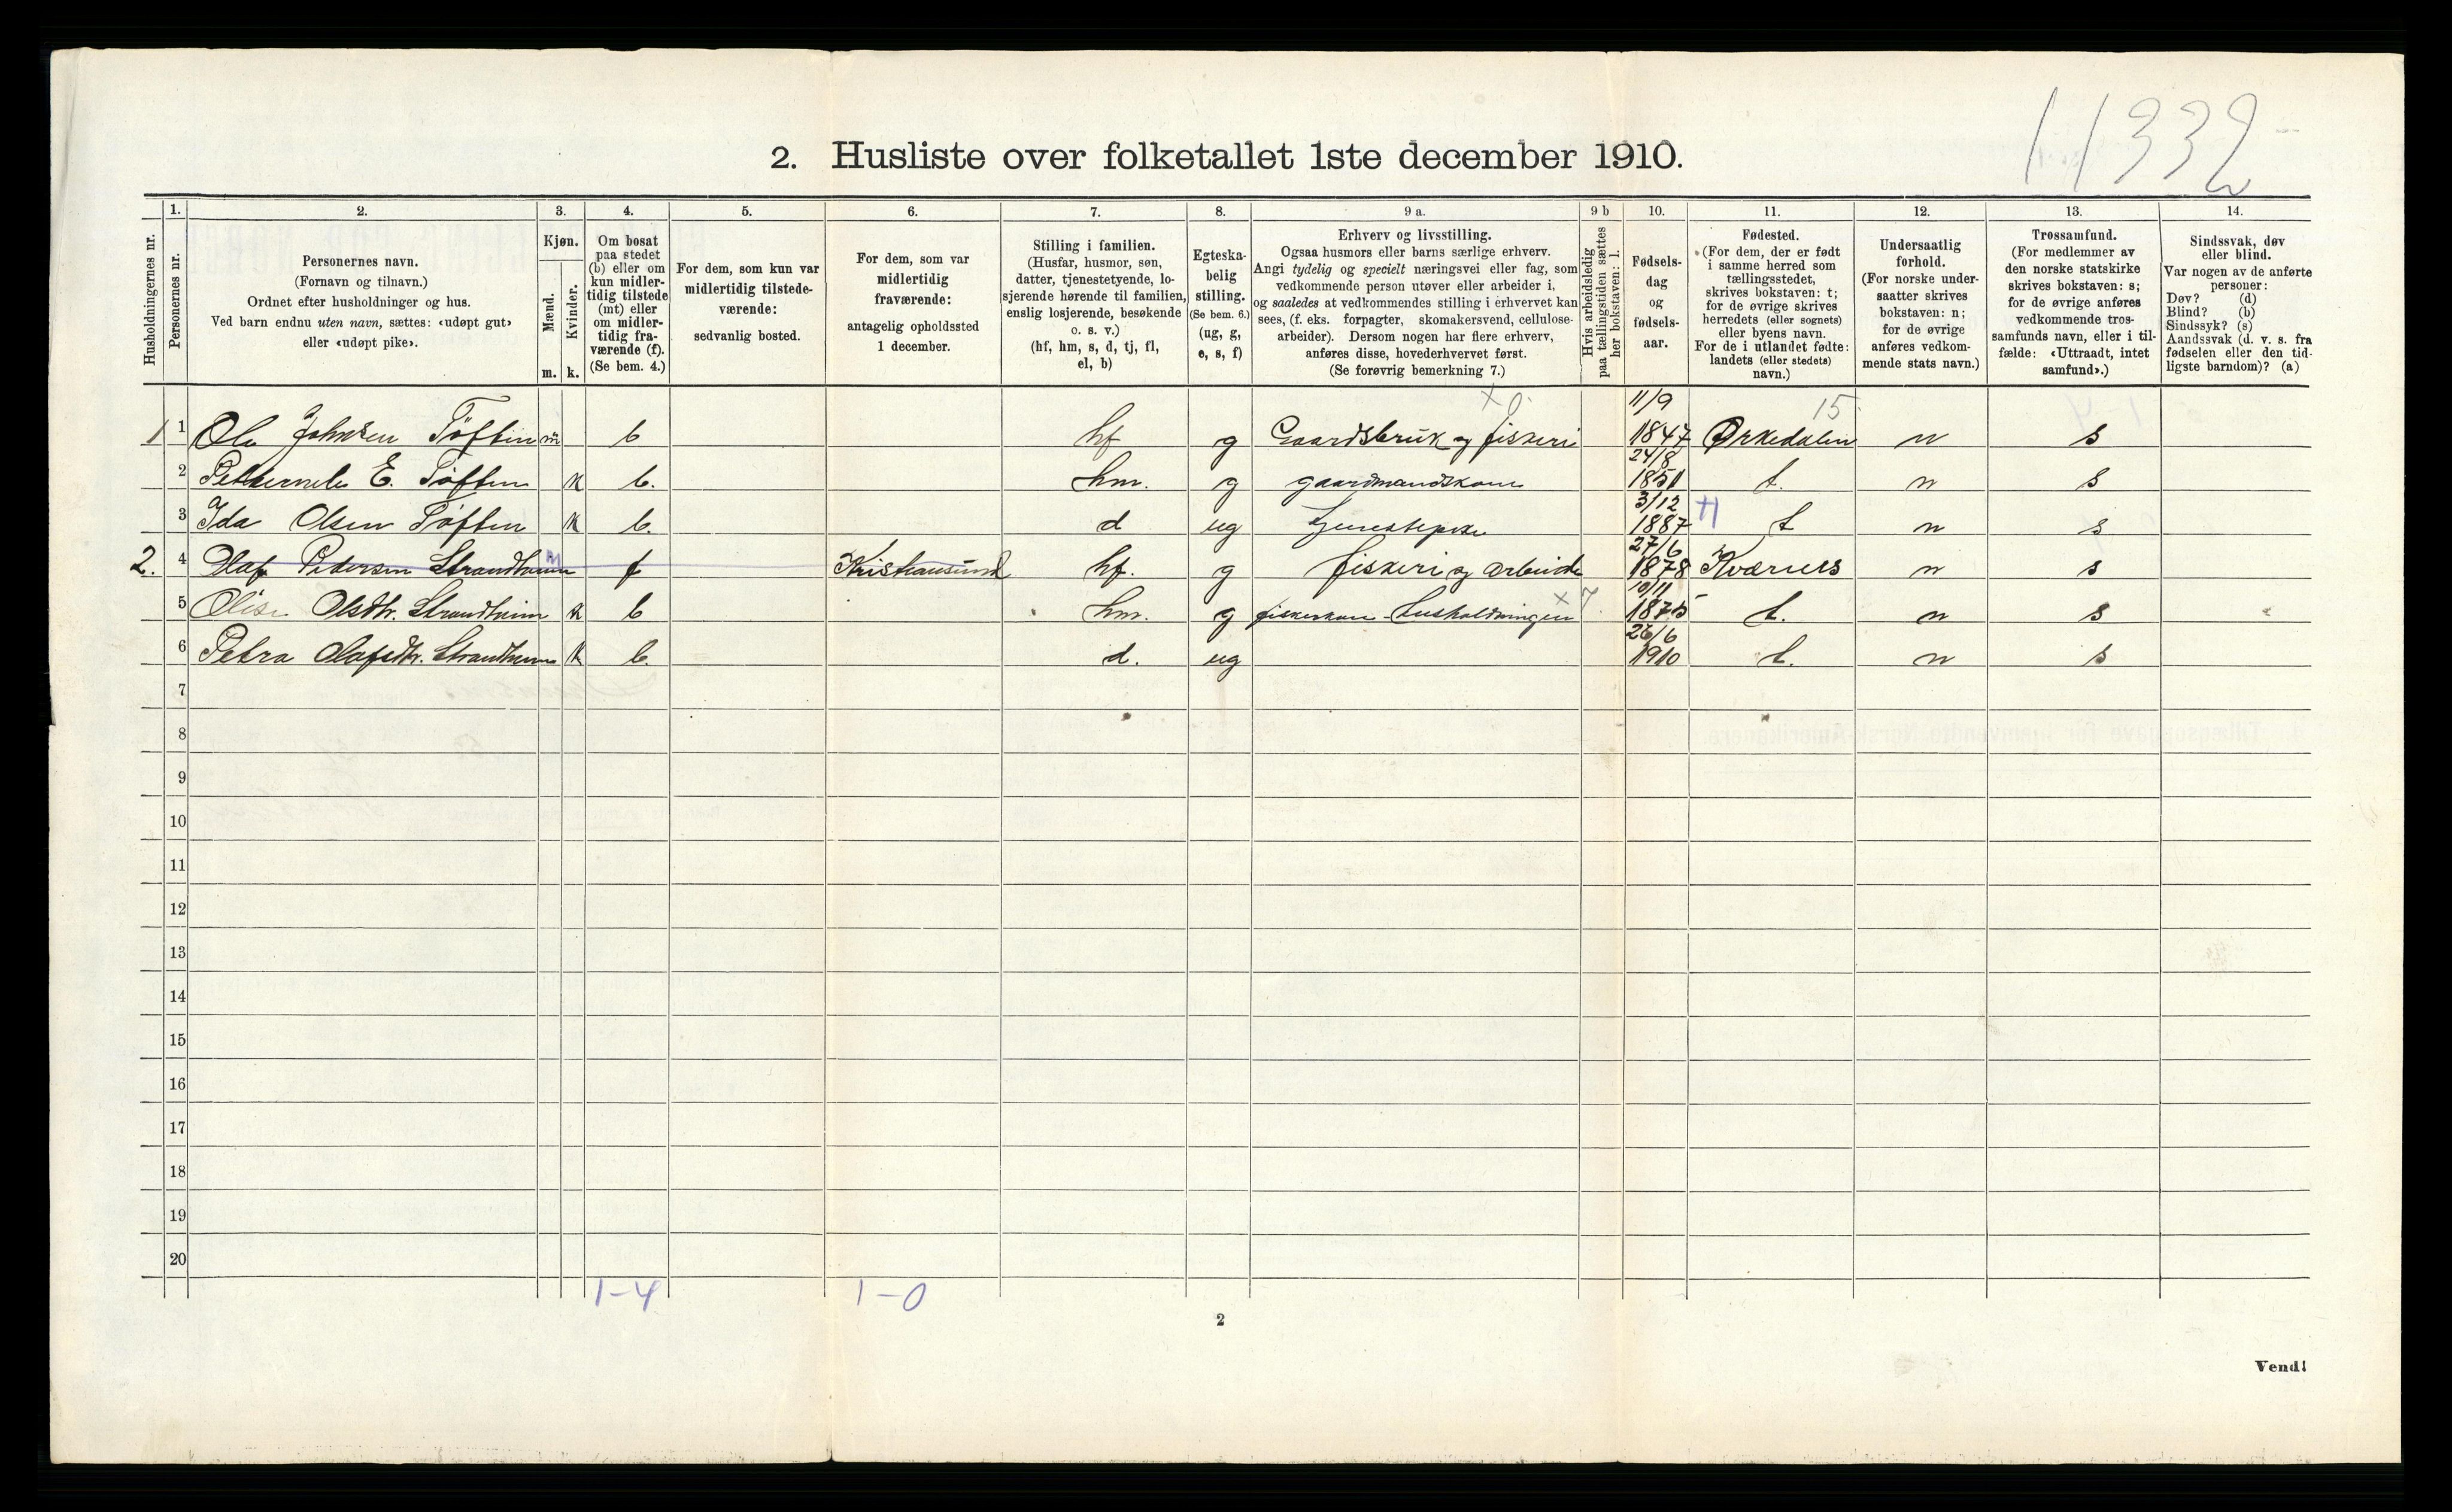 11332
2. Husliste over folketallet 1ste december 1910.
Husholdningernes nr.
1.
Personernes nr.
2.
Personernes navn.
(Fornavn og tilnavn.)
Ordnet efter husholdninger og hus.
Ved barn endnu uten navn, sættes: «udøpt gut»
eller «udøpt pike».
3.
Kjøn.
Mænd.
Kvinder.
m. k.
4.
Om bosat
paa stedet
(b) eller om
kun midler-
tidig tilstede
(mt) eller
om midler-
tidig fra-
værende (f).
(Se bem. 4.)
5.
For dem, som kun var
midlertidig tilstede-
værende:
sedvanlig bosted.
6.
For dem, som var
midlertidig
fraværende:
antagelig opholdssted
1 december.
7.
Stilling i familien.
(Husfar, husmor, søn,
datter, tjenestetyende, lo-
sjerende hørende til familien,
enslig losjerende, besøkende
o. s. v.)
(hf, hm, s, d, tj, fl,
el, b)
8.
Egteska-
belig
stilling.
(Se bem. 6.)
(ug, g,
e, s, f)
9 a.
Erhverv og livsstilling.
Ogsaa husmors eller barns særlige erhverv.
Angi tydelig og specielt næringsvei eller fag, som
vedkommende person utøver eller arbeider i,
og saaledes at vedkommendes stilling i erhvervet kan
sees, (f. eks. forpagter, skomakersvend, cellulose-
arbeider). Dersom nogen har flere erhverv,
anføres disse, hovederhvervet først.
(Se forøvrig bemerkning 7.)
9 b
Hvis arbeidsledig
paa tællingstiden sættes
her bokstaven: l.
10.
Fødsels-
dag
og
fødsels-
aar.
11.
Fødested.
(For dem, der er født
i samme herred som
tællingsstedet,
skrives bokstaven: t;
for de øvrige skrives
herredets (eller sognets)
eller byens navn.
For de i utlandet fødte:
landets (eller stedets)
navn.)
12.
Undersaatlig
forhold.
(For norske under-
saatter skrives
bokstaven: n;
for de øvrige
anføres vedkom-
mende stats navn.)
13.
Trossamfund.
(For medlemmer av
den norske statskirke
skrives bokstaven: s;
for de øvrige anføres
vedkommende tros-
samfunds navn, eller i til-
fælde: «Uttraadt, intet
samfund».)
14.
Sindssvak, døv
eller blind.
Var nogen av de anførte
personer:
Døv? (d)
Blind? (b)
Sindssyk? (s)
Aandssvak (d. v. s. fra
fødselen eller den tid-
ligste barndom)? (a)
1 1 Ole Johnsen Tøften m b hf g Gaardsbruk og fiskeri 11/9 1847 Ørkedalen 15 n s
2 E. Tøften k b. hm. g gaardmandskone 24/8 1851 t. n s
3 Ida Olsen Tøften k b. d ug tjenestepike 3/12 1887 t n s
2. 4 Olaf Pedersen Strandheim m f Kristiansund hf. g fiskeri og arbeide 27/6 1878 Kværnes n s
5 Olise Olsdtr. Strandheim k b hm. g fiskerkone - husholdningen x 7. 10/11 1875 t. n s
6 Petra Olafsdtr. Strandheim k b. d. ug 26/6 1910 t. n s
7
8
9
10
11
12
13
14
15
16
17
18
19
20
1-4 1-0
2
Vend!